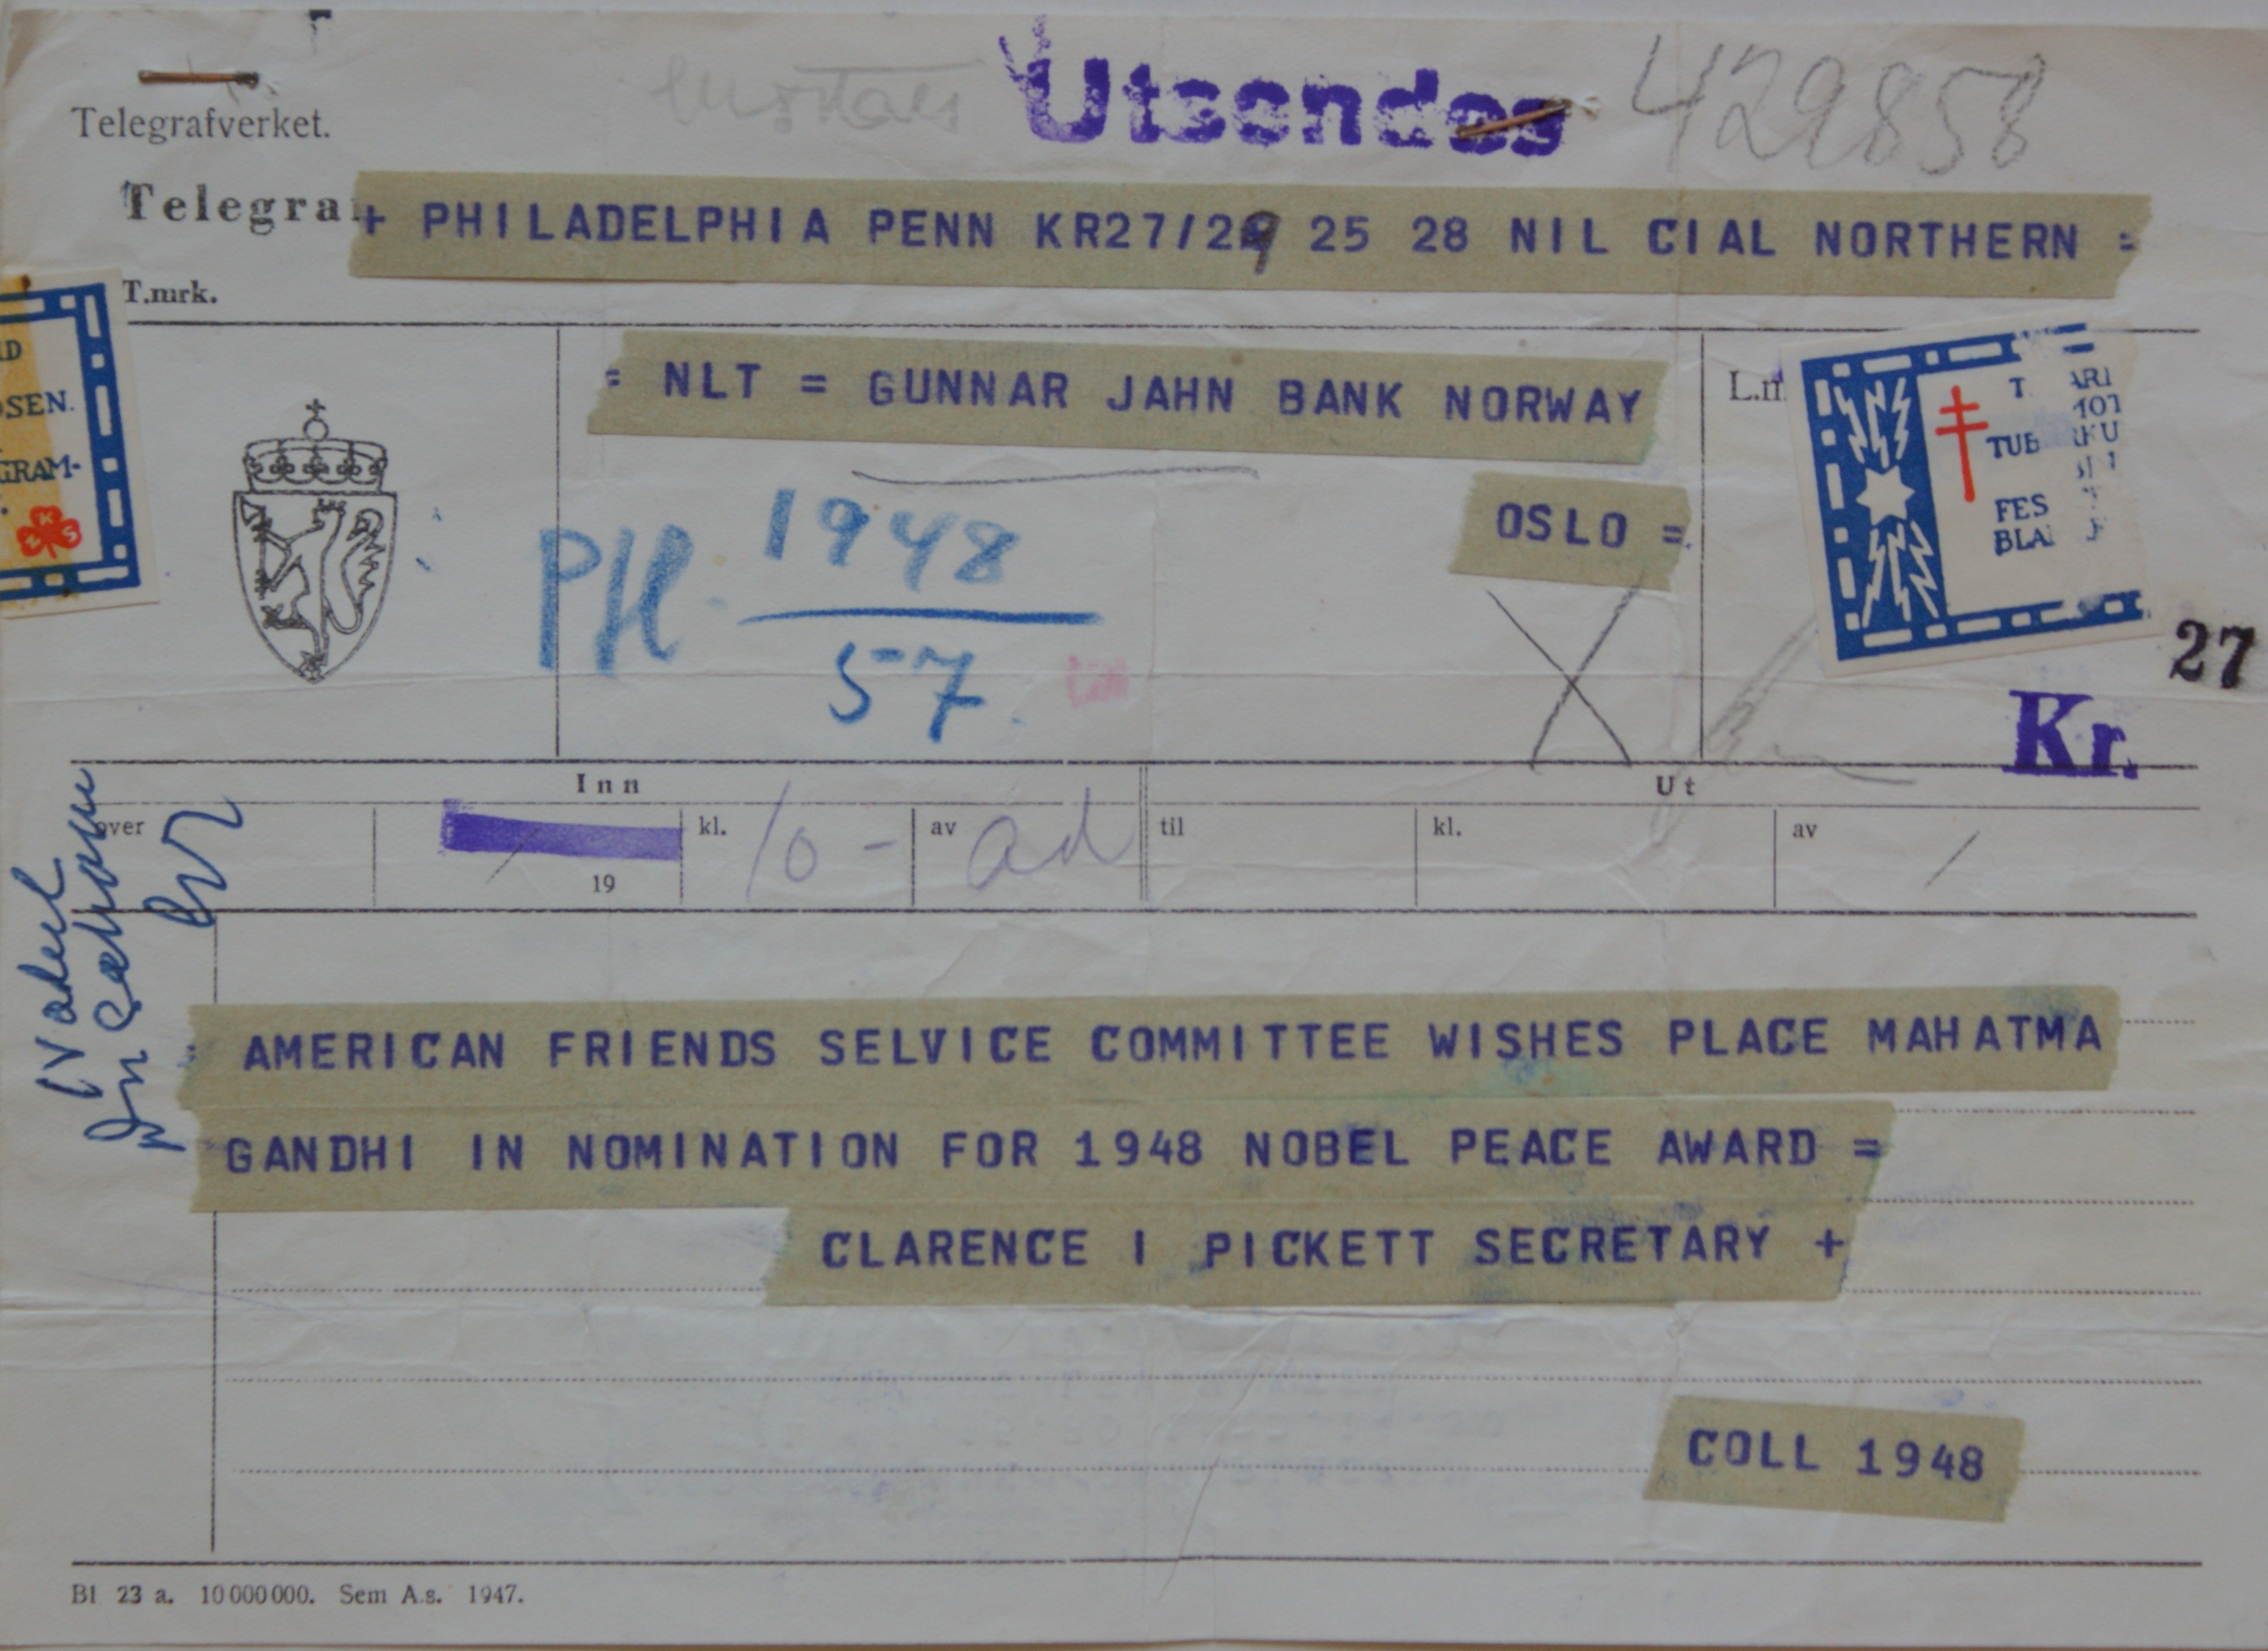 Utsendes 429858
Telegrafverket.
Telegra + PHILADELPHIA PENN KR27/29 25 28 NIL CIAL NORTHERN =
T.mrk.
= NLT = GUNNAR JAHN BANK NORWAY
OSLO =
SEN.
GRAM-
N K S
L.
TUB
FES
BLA
1948
57
27
Kr.
Inn
Ut
over
19
kl. 10 -
av ad
til
kl.
av
= AMERICAN FRIENDS SELVICE COMMITTEE WISHES PLACE MAHATMA
GANDHI IN NOMINATION FOR 1948 NOBEL PEACE AWARD =
CLARENCE I PICKETT SECRETARY +
COLL 1948
Bl 23 a. 10 000 000. Sem A.s. 1947.